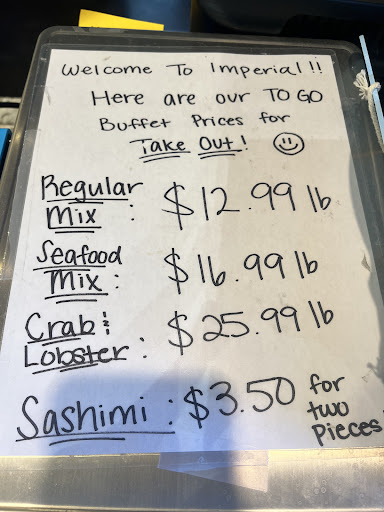 Welcome To Imperial!!
Here are our TO GO
Buffet Prices for
Take Out! ☺
Regular
Mix : $12.99 lb
Seafood
Mix : $16.99 lb
Crab &
Lobster : $25.99 lb
Sashimi : $3.50 for
two
Pieces